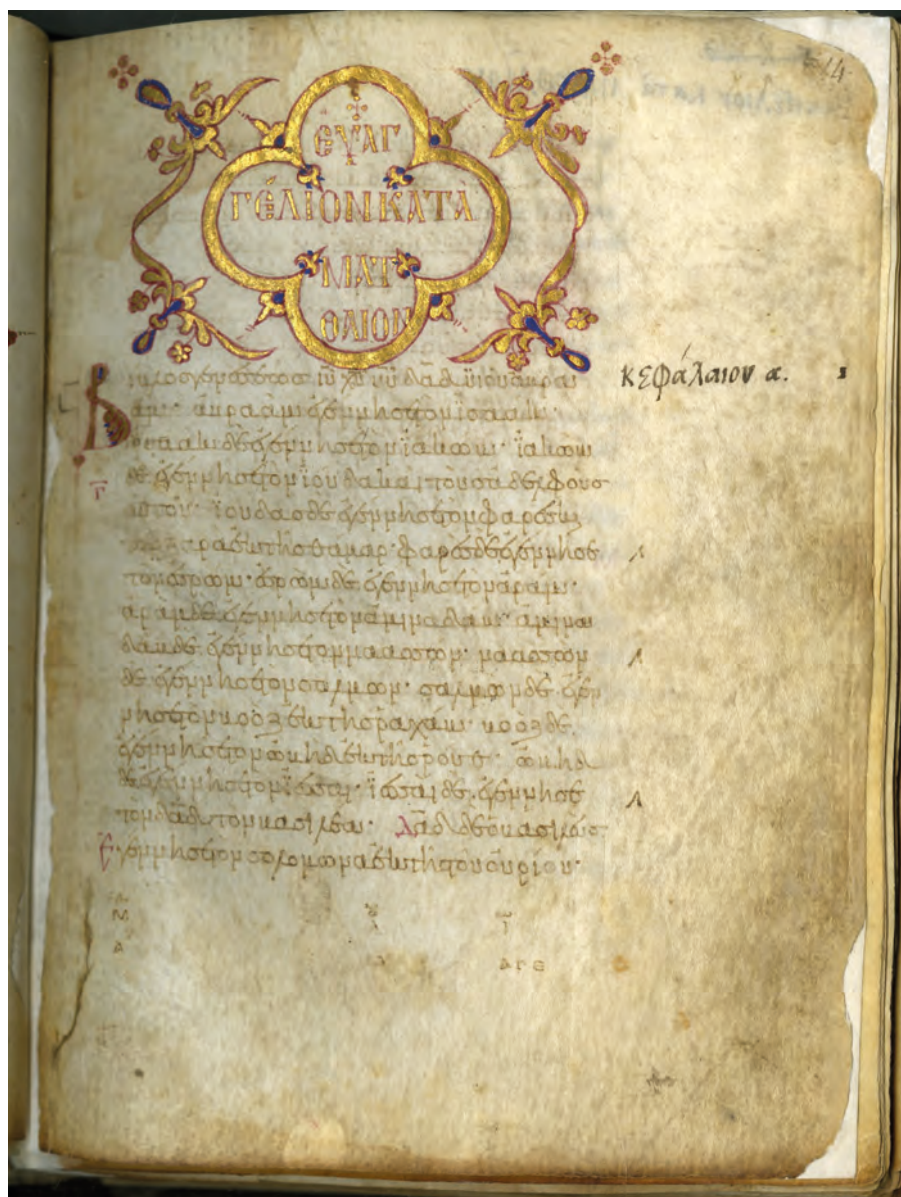 14
ΕΥΑΓ
ΓΕΛΙΟΝ ΚΑΤΑ
ΜΑΤ
ΘΑΙΟΝ
Βίβλος γενέσεως ιυ χυ υυ δαδ υιου αβρα
άμ· αβραὰμ ἐγέννησε τὸν ισαάκ·
ισαὰκ δὲ ἐγέννησε τὸν ϊακώβ· ϊακὼβ
δὲ ἐγέννησε τὸν ϊούδα καὶ τοὺς ἀδελφοὺς
αυτοῦ· ϊούδας δὲ ἐγέννησε τὸν φαρὲς κ
τὸν ζαρὰ ἐκ τῆς θάμαρ· φαρὲς δὲ ἐγέννησε
τὸν ἐσρώμ· ἐσρὼμ δὲ ἐγέννησε τὸν ἀράμ·
ἀρὰμ δὲ ἐγέννησε τὸν ἀμιναδάβ· ἀμινα
δὰβ δὲ ἐγέννησε τὸν ναασσών· ναασσὼν
δὲ ἐγέννησε τὸν σαλμών· σαλμὼν δὲ ἐγέν
νησε τὸν βοὸζ ἐκ τῆς ραχάβ· βοὸζ δὲ
ἐγέννησε τὸν ὠβὴδ ἐκ τῆς ρούθ· ὠβὴδ
δὲ ἐγέννησε τὸν ϊεσσαί· ϊεσσαὶ δὲ ἐγέννησε
τὸν δαδ τὸν βασιλέα· Δαδ δὲ ὁ βασιλεὺς
ἐγέννησε τὸν σολομῶνα ἐκ τῆς τοῦ οὐρίου·
κεφάλαιον α.
Α Γ Ε